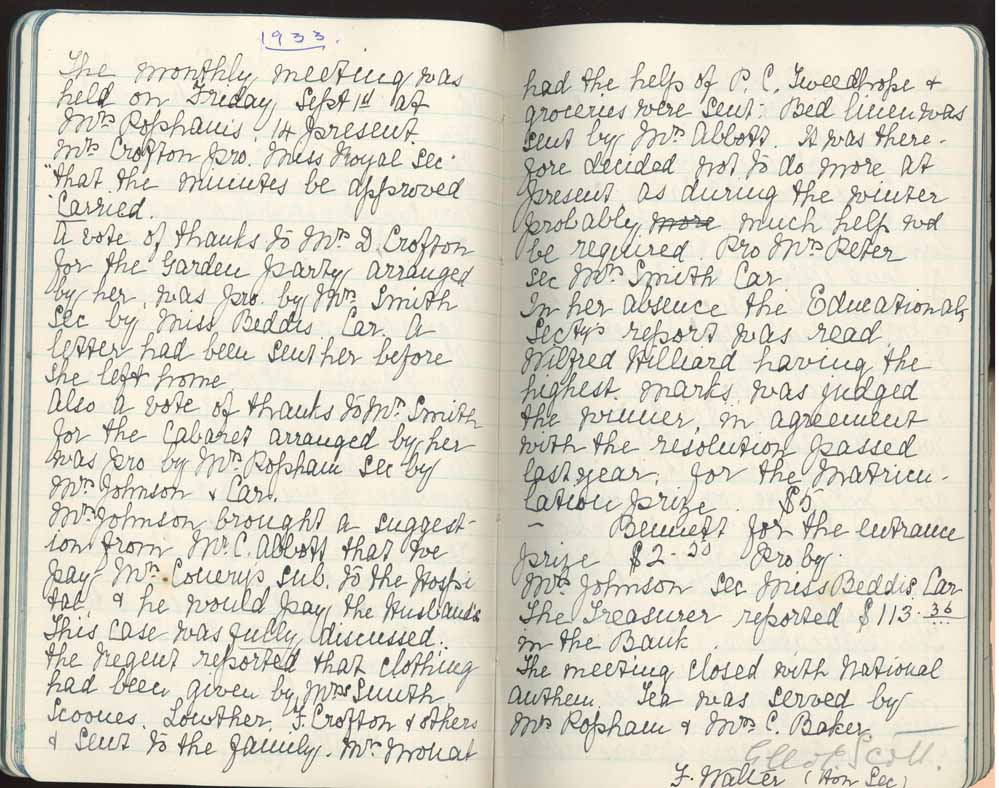 1933.
The monthly meeting was
held on Friday Sept 1st at
Mrs Ropham's 14 present.
Mrs Crofton pro. Miss Royal Sec.
"that the minutes be approved
"Carried.
A vote of thanks to Mrs D. Crofton
for the Garden Party arranged
by her, was pro. by Mrs Smith
Sec by Miss Beddis Car. A
letter had been sent her before
she left home
Also a vote of thanks to Mrs Smith
for the Cabaret arranged by her
was pro by Mrs Ropham Sec by
Mrs Johnson & Car.
Mrs Johnson brought a suggest-
ion from Mr C. Abbott that we
pay Mrs sub. to the Hospi
tal, & he would pay the Husband's
This case was fully discussed.
the Regent reported that clothing
had been given by Mrs Smith
Scoones, Lowther, F. Crofton & others
& sent to the family. Mrs Mouat
had the help of P. C. Tweedhope &
groceries were sent. Bed linen was
sent by Mrs Abbott. It was there-
fore decided not to do more at
present as during the winter
probably more much help wd
be required. Pro Mrs Peter
Sec Mrs Smith Car.
In her absence the Educational
Secty's report was read.
Wilfred Hilliard having the
highest marks was judged
the winner, in agreement
with the resolution passed
last year, for the Matricu-
lation prize. $5
— Bennett for the entrance
prize $2.50 Pro by.
Mrs Johnson Sec Miss Beddis, Car
The Treasurer reported $113.36
in the Bank.
The meeting closed with National
anthem. Tea was served by
Mrs Ropham & Mrs C. Baker
Scott.
F. Walter (Hon Sec)